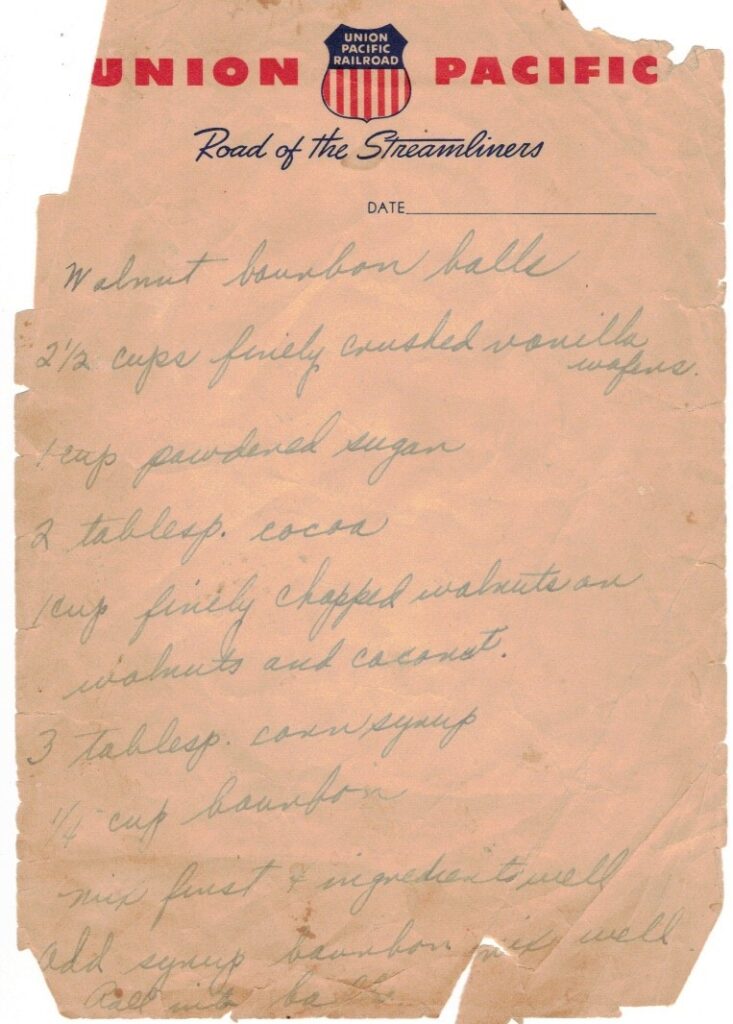 UNION PACIFIC RAILROAD
UNION PACIFIC
Road of the Streamliners
DATE
Walnut bourbon balls
2 1/2 cups finely crushed vanilla
wafers.
1 cup powdered sugar
2 tablesp. cocoa
1 cup finely chopped walnuts or
walnuts and coconut.
3 tablesp. corn syrup
1/4 cup bourbon
mix first 4 ingredients well
add syrup bourbon mix well
Roll into balls